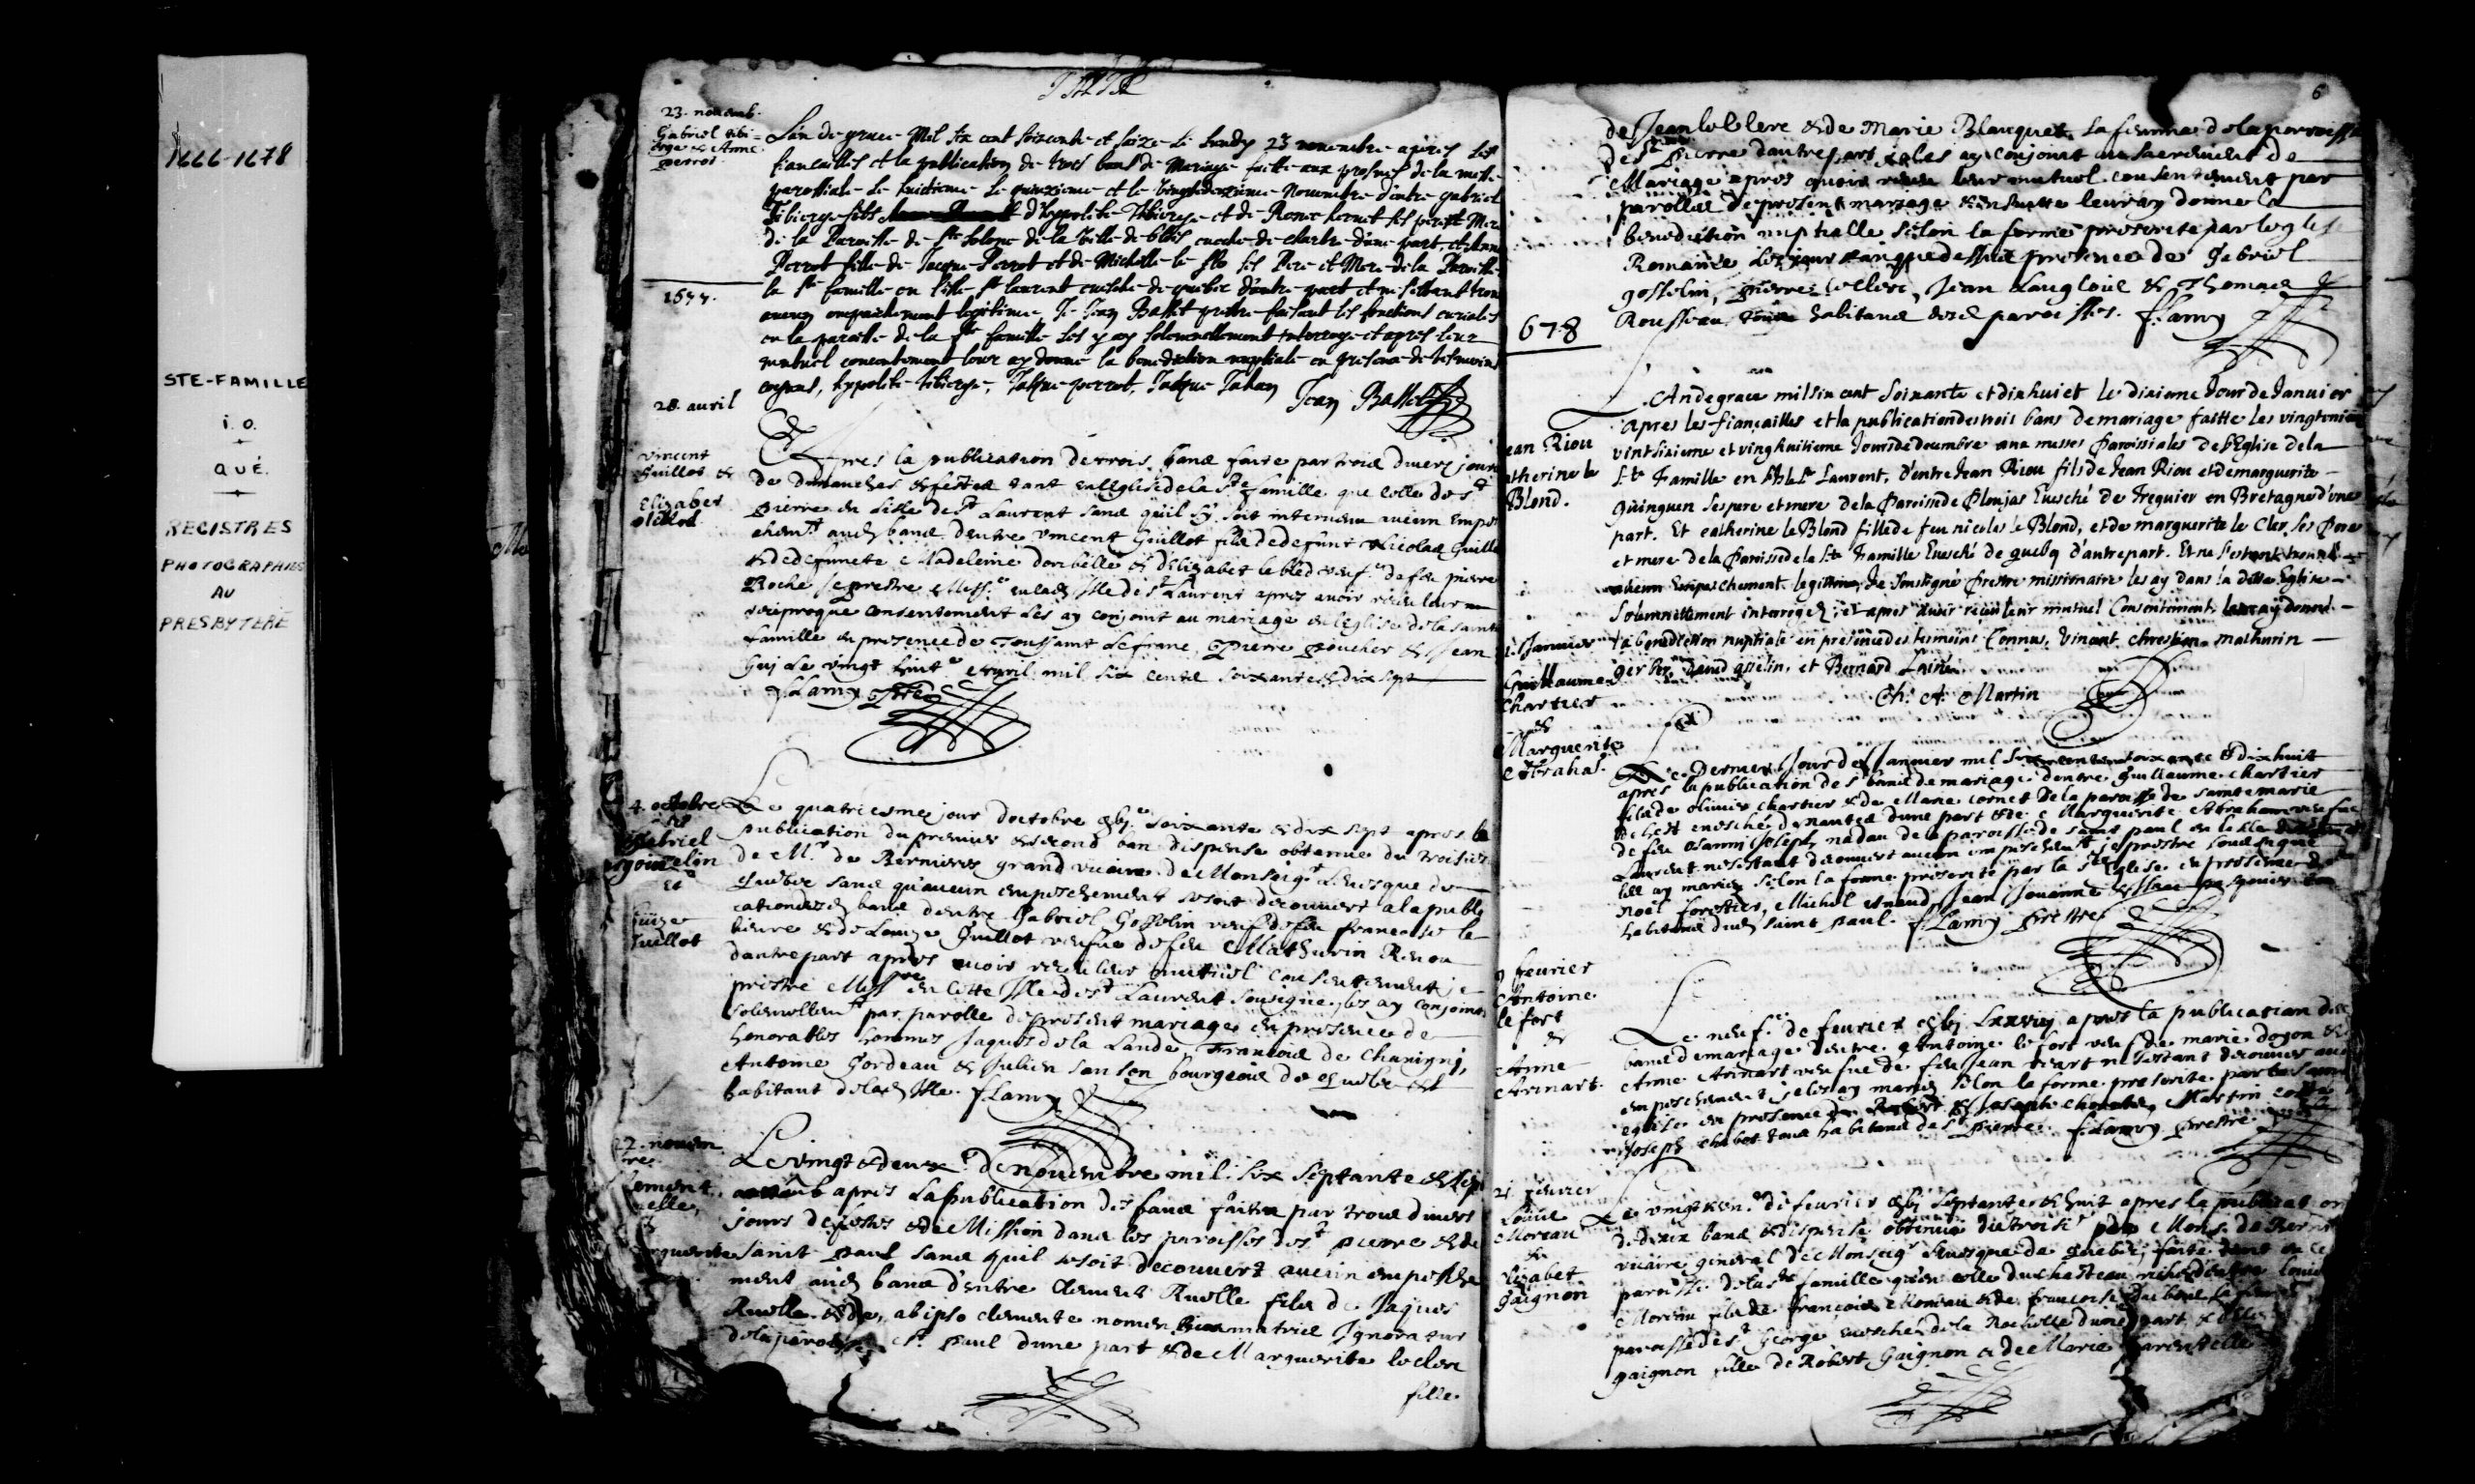 1666-1678
STE-FAMILLE
I. O.
QUÉ.
REGISTRES
PHOTOGRAPHIÉS
AU
PRESBYTÈRE
23. novemb.
Gabriel tibi=
erge & Anne
perrot
L'an de grace Mil six cent soixante et seize le lundy 23 novembre apres les
fiancailles et la publication de trois bans de Mariage faitte aux prosnes de la messe
paroissiale le huictieme le quinzieme et le vingtdeuxieme Novembre d'entre gabriel
Tibierge fils d'hypolite Thibierge et de Renee hernet ses pere et Mere
de la Paroisse de Ste Solene de la ville de blois evesche de chartre d'une part, et Anne
Perrot fille de Jacque Perrot et de Michelle le flo ses Pere et Mere de la Paroisse
1677.
la Ste famille en l'isle St laurent evesche de quebec d'autre part et ne s'estant trouve
aucun empeschement legitime, Je Jean Basset prestre faisant les fonctions curiales
en la paroisse de la Ste famille les y ay solemnellement interroge et apres leur
mutuel consentement leur ay donne la benediction nuptiale en presence de tesmoins
cognus, hypolite tibierge, Jacque perrot, Jacque Jahan
Jean Basset
28. avril
vincent
Guillot &
Elizabet
Apres la publication de trois bans faite par trois divers jours
de dimanches & festes tant en l'Eglise de la Ste famille que celle de St
pierre en l'isle de St Laurent sans qu'il s'y soit intervenu aucun empes
chemt. aud bans d'entre vincent Guillot fils de defunt Nicolas Guillot
& de defuncte Madeleine doribelle & d'Elizabet le bled veufe de feu pierre
Roche je prestre Misse. en lad Isle de St Laurent apres avoir receu leur
reciproque consentement les ay conjoint au mariage en l'eglise de la sainte
famille en presence de Toussaint Lefranc, Pierre Boucher & Jean
Guj le vingt huite. avril mil six cents soixante & dix sept
f. Lamy Ptre
4. octobre
Gabriel
goincelin
et
Guillot
Le quatriesme jour doctobre soixante & dix sept apres la
publication du premier & second ban dispense obtenue du troisie.
de Mr. de Bernieres grand vicaire de Monseigr. Levesque de
Quebec sans qu'aucun empeschement se soit decouvert a la publi
cation desd bans d'entre Gabriel Gosselin veuf de feu francoise le
lievre & de Louize Guillot veufue de feu Mathurin Renou
dautre part apres avoir receu leur mutuel consentement je
prestre Missre en cette Isle de St Laurent sousigne, les ay conjoints
solemnellemt par parolle de present mariage en presence de
honorables hommes Jaques de la Lande, Francois de Chavigni,
Antoine Gordeau & Julien sanson bourgeois de quebec &
habitant de lad Isle. f. Lamy
22. novem
bre.
Clement
uelle,
&
arguerite
Le vingt & deuxe. de novembre mil. six septante & sept
apres La publication des bans faitte par trois divers
jours de festes & de Mission dans les paroisses de St pierre & de
saint Paul sans quil se soit decouvert aucun empesche
ment aud bans d'entre Clement Ruelle fils de Jaques
Ruelle & de, ab ipso clemente nomen matris Ignoratur
de la paroisse St. Paul dune part & de Marguerite leclerc
fille
6
de Jean leclerc & de Marie Blanquet sa femme de la paroisse
de St Pierre dautre part & les ay conjoint au sacrement de
Mariage apres avoir receu leur mutuel consentement par
parolles de present mariage & ensuitte leur ay donne la
benediction nuptialle selon la forme prescrite par leglise
Romaine en presence de Gabriel
gosselin, pierre leclerc, Jean Langlois & Thomas
Rousseau, tous habitans desd paroisses. f. Lamy
678
ean Riou
atherine le
Blond.
L'An de grace mil six cent soixante et dix huict le dixieme Jour de Janvier
apres les fiançailles et la publication des trois bans de mariage faitte les vingtunieme
vintsixieme et vinghuitieme Jours de decembre aux messes Paroissiales de l'Eglise de la
Ste Famille en l'Isle St Laurent, d'entre Jean Riou fils de Jean Riou et de marguerite
Guinguen ses pere et mere de la Paroisse de Ploujas Evesché de Treguier en Bretagne d'une
part. Et catherine le Blond fille de feu nicolas le Blond, et de marguerite le Cler, ses Pere
et mere de la Paroisse de la Ste Famille Evesché de quebq d'autre part. Et ne s'estant trouvé
aucun Empeschement legitime, Je soussigné Prestre missionaire les ay dans la ditte Eglise
Solemnellement interrogez, et apres avoir reçeu leur mutuel Consentement leur ay donné
la benediction nuptiale en presence des temoins Connus, Vincent Chrestien mathurin
gerbert David asselin, et Bernard Lainé
Ch. A. Martin
Janvier
Guillaume
Chartier
&
Marguerite
Abraha.
Le Dernier Jour de Janvier mil six cents soixante & dix huit
apres la publication des bans de mariage dentre Guillaume chartier
fils de olivier chartier & de Marie cornet de la paroisse de sainte marie
evesché de nantes dune part & de Marguerite Abraham veufue
de feu Joseph nadau de la paroisse de saint paul en lisle de St
Laurent ne s'estant decouvert aucun empeschemt je prestre sousigné
les ay mariez selon la forme prescrite par la Ste Eglise en presence de
noel forestier, Michel esnaud, Jean Jouanne
habitans dud saint paul. f. Lamy prestre
9 fevrier
Antoine
le fort
&
Anne
Arinart.
Le neufe. de fevrier Lxxviij apres la publication des
bans de mariage dentre Antoine le fort veuf de marie doyon &
Anne Arinart veufue de feu Jean ne s'estant decouvert auc
empeschement je les ay mariez selon la forme prescrite par la sainte
eglise en presence Martin
Joseph chabot tous habitans de St Pierre. f. Lamy prestre
21 fevrier
Louis
Moreau
&
Elizabet
gaignon
Le vingt & un. de fevrier septante & huit apres la publication
de deux bans & dispense obtenue du troisie par Mons. de Berni
vicaire general de Monseigr Levesque de Quebec, faite tant en ce
paroisse de la Ste famille qu'en celle du chasteau richer d'entre Louis
Moreau fils de françois Moreau & de francoise
paroisse de St. George evesché de la Rochelle dune part &
gaignon fille de Robert Gaignon & de Marie parenteille